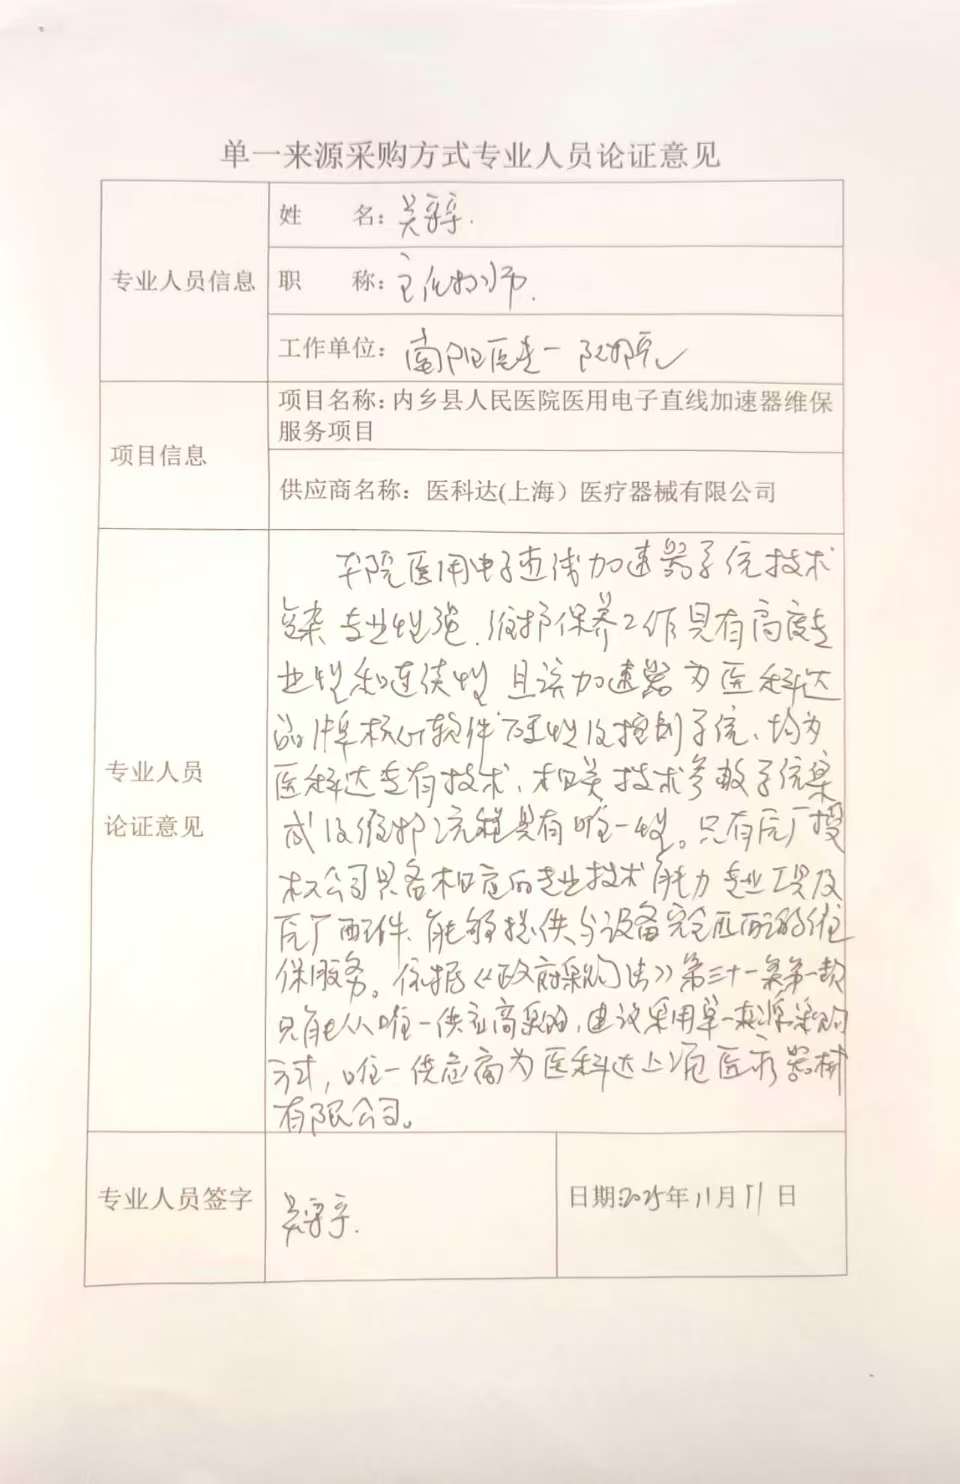 单一来源采购方式专业人员论证意见
专业人员信息
姓 名：吴
职 称：主任技师.
工作单位：南阳医专一附院
项目信息
项目名称：内乡县人民医院医用电子直线加速器维保
服务项目
供应商名称：医科达(上海）医疗器械有限公司
专业人员
论证意见
本院医用电子直线加速器系统技术
复杂 专业性强. 维护保养工作具有高度专
业性和连续性 且该加速器为医科达
品牌核心软件 及控制系统、均为
医科达专有技术, 相关技术参数系统集
成及维护流程具有唯一性。只有原厂授
权公司具备相应的专业技术能力 专业工具及
原厂配件、能够提供与设备完全匹配的维
保服务。依据《政府采购法》第三十一条第一款
只能从唯一供应商采购, 建议采用单一来源采购
方式, 唯一供应商为医科达上海医疗器械
有限公司。
专业人员签字
吴
日期:2025年11月11日